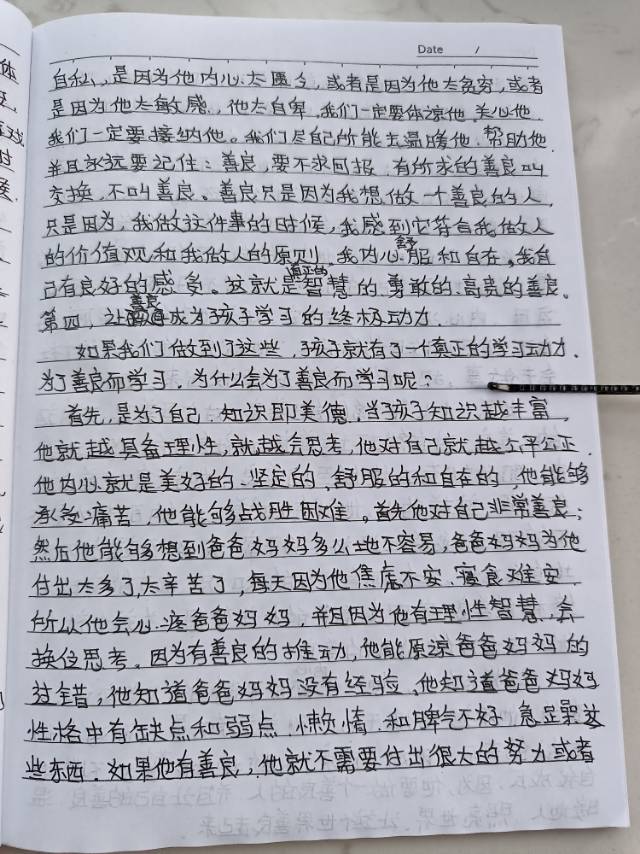 Date /
自私,是因为他内心太匮乏,或者是因为他太贫穷,或者
是因为他太敏感,他太自卑,我们一定要体谅他,关心他.
我们一定要接纳他。我们尽自己所能去温暖他,帮助他
并且永远要记住:善良,要不求回报,有所求的善良叫
交换,不叫善良。善良只是因为我想做一个善良的人,
只是因为,我做这件事的时候,我感到它符合我做人
的价值观和我做人的原则,我内心舒服和自在,我自
己有良好的感受。这就是真正的智慧的、勇敢的、高贵的善良。
第四,让善良成为孩子学习的终极动力.
如果我们做到了这些,孩子就有了一个真正的学习动力.
为了善良而学习.为什么会为了善良而学习呢?
首先,是为了自己.知识即美德,当孩子知识越丰富,
他就越具备理性,就越会思考,他对自己就越公平公正.
他内心就是美好的、坚定的、舒服的和自在的.他能够
承受痛苦,他能够战胜困难。首先他对自己非常善良;
然后他能够想到爸爸妈妈多么地不容易,爸爸妈妈为他
付出太多了,太辛苦了,每天因为他焦虑不安、寝食难安.
所以他会心疼爸爸妈妈,并且因为他有理性智慧,会
换位思考。因为有善良的推动,他能原谅爸爸妈妈的
过错,他知道爸爸妈妈没有经验,他知道爸爸妈妈
性格中有缺点和弱点,懒惰,和脾气不好,急躁这
些东西.如果他有善良,他就不需要付出很大的努力或者